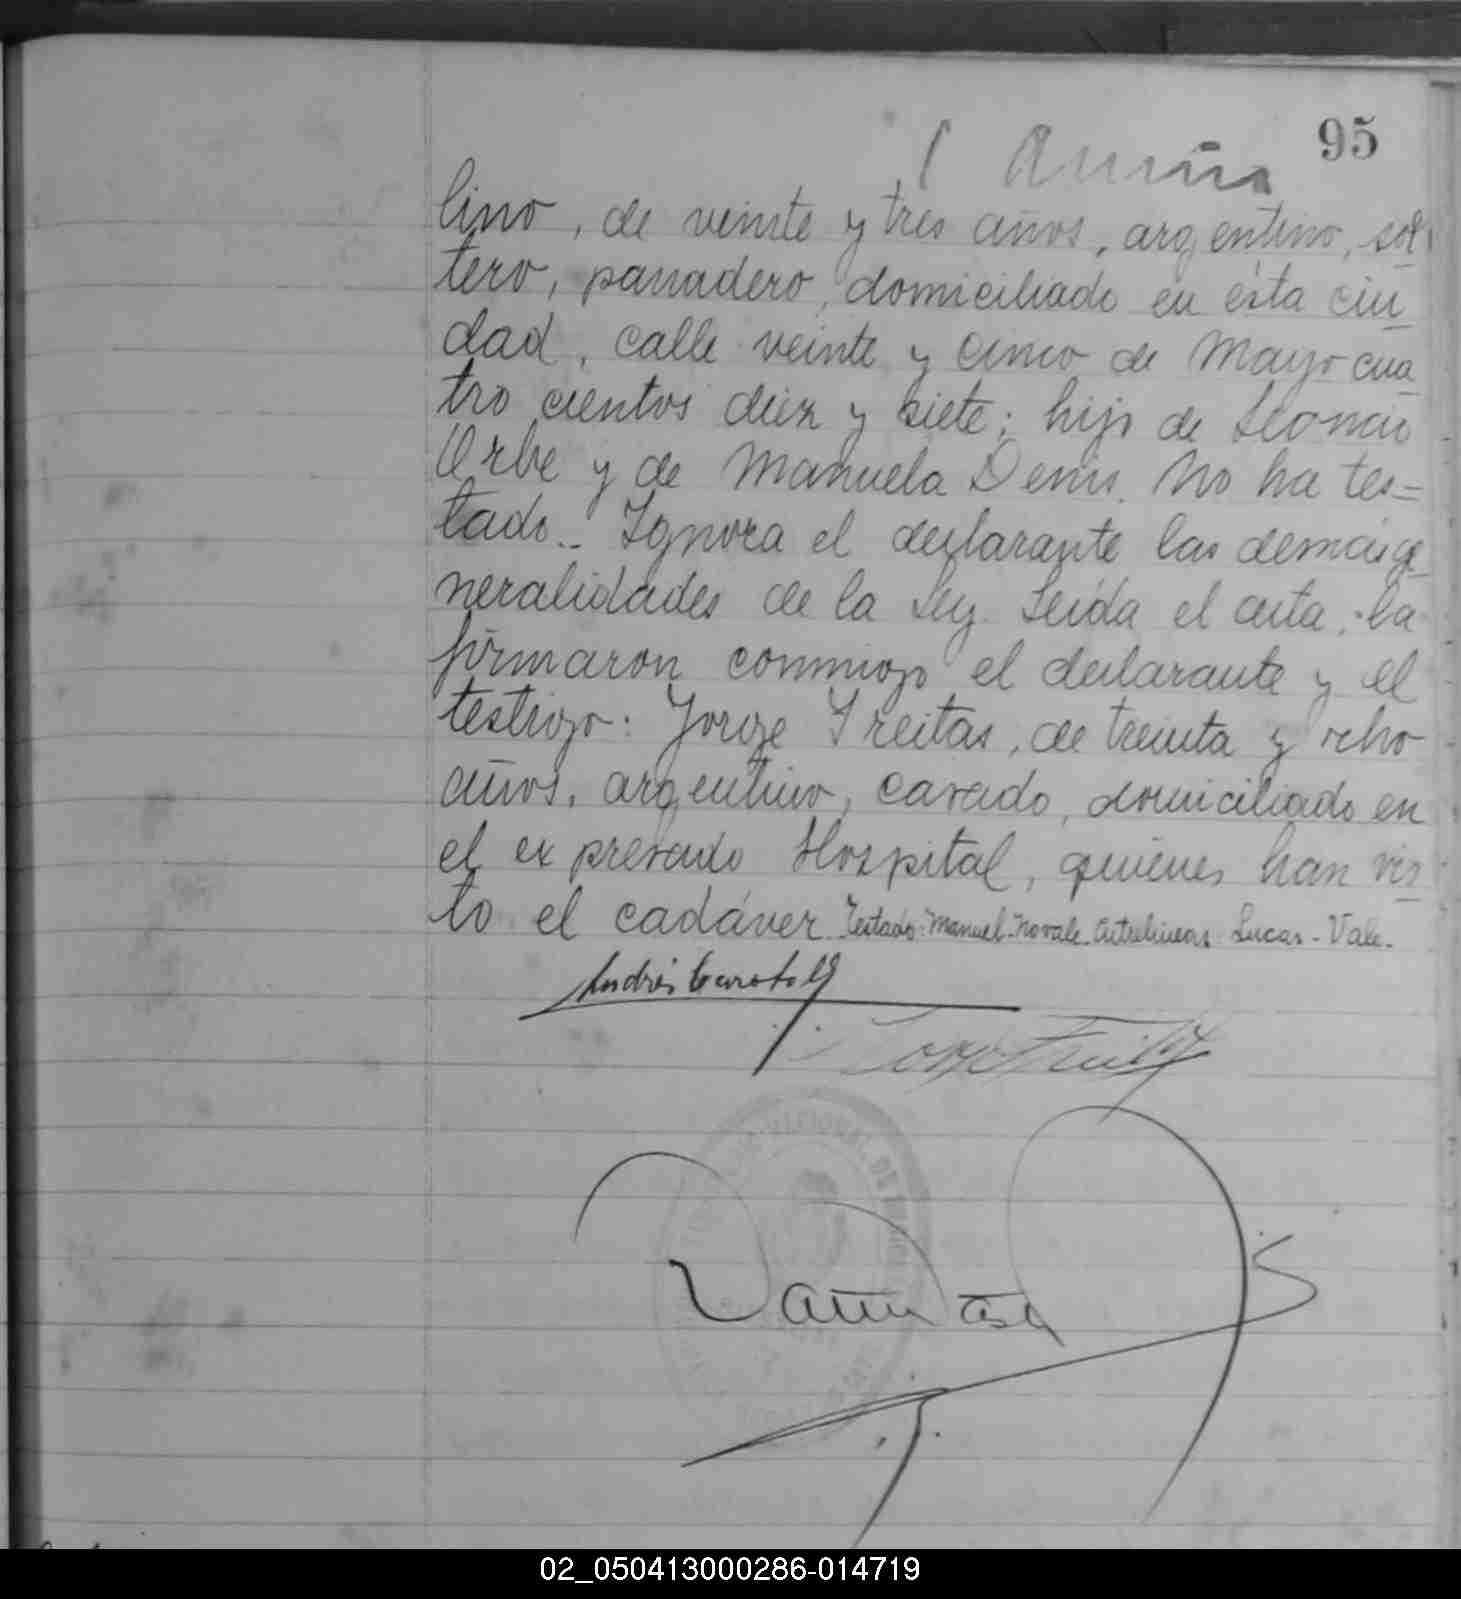 95
lino, de veinte y tres años, argentino, sol
tero, panadero, domiciliado en ésta ciu
dad, calle veinte y cinco de Mayo cua
tro cientos diez y siete; hijo de
Orbe y de Manuela Denis. No ha tes=
tado.- Ignora el declarante las demás ge
neralidades de la Ley. Leída el acta, la
firmaron conmigo el declarante y el
testigo: Jorge Freitas, de treinta y ocho
años, argentino, casado, domiciliado en
el expresado Hospital, quienes han vis
to el cadáver. Testado-Manuel-Novale-Entrelineas-Lucas-Vale.
Andrés
02_050413000286-014719